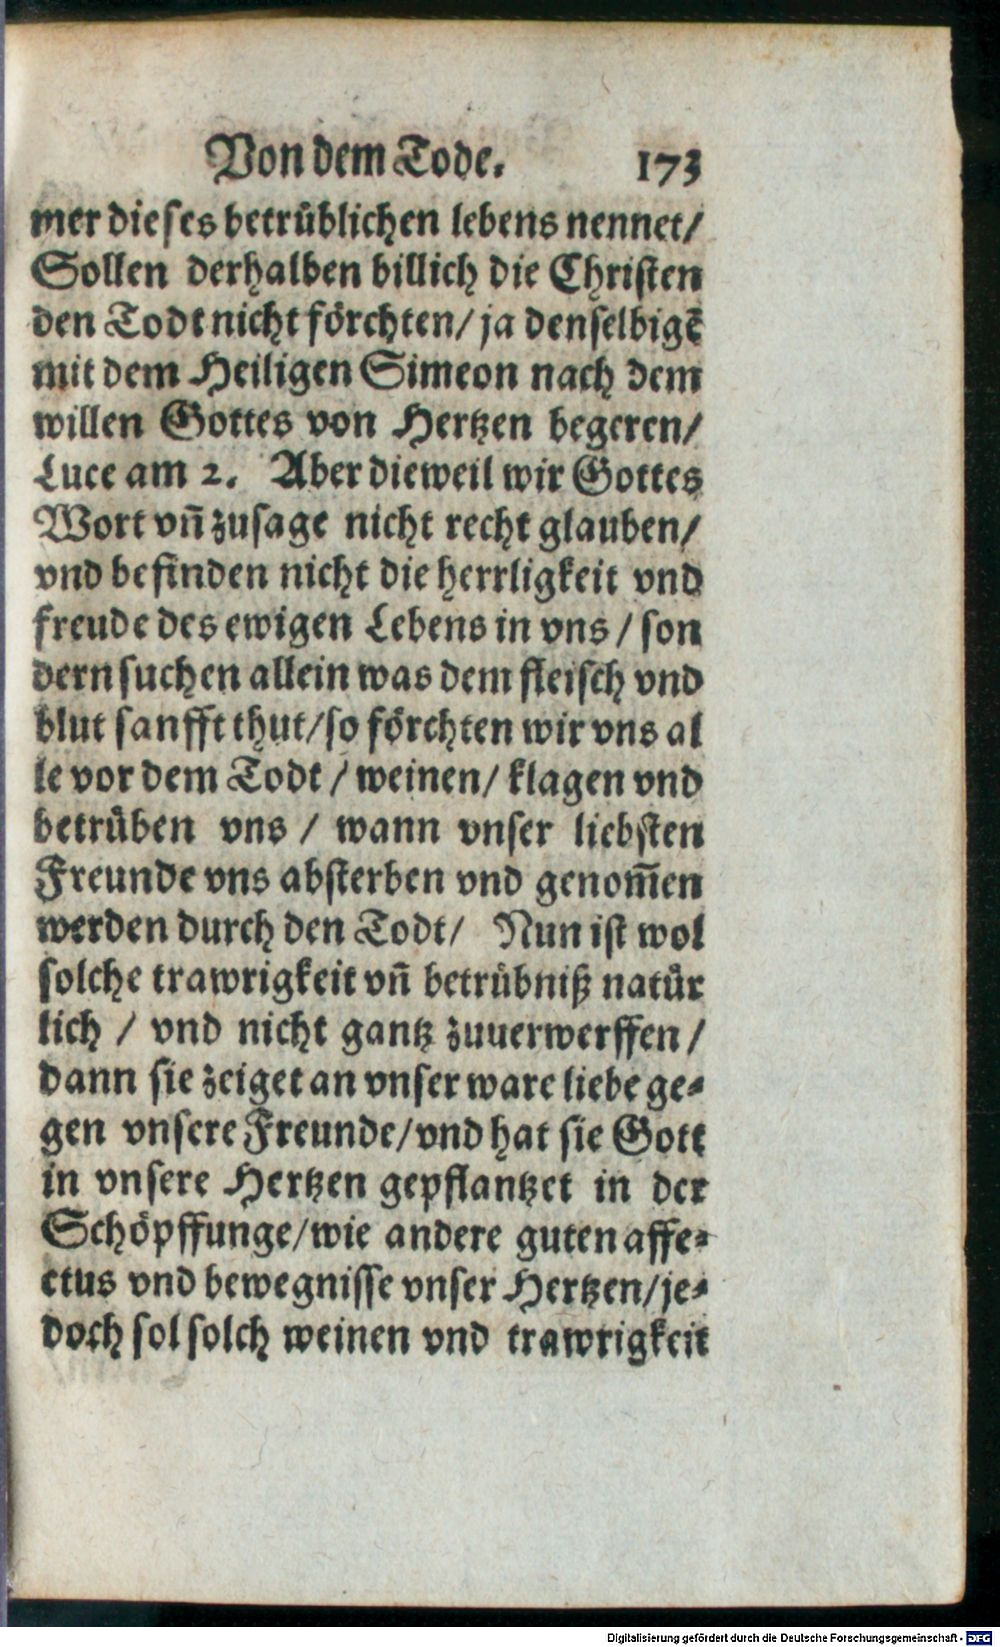 Von dem Tode. 173
mer dieses betrüblichen lebens nennet/
Sollen derhalben billich die Christen
den Todt nicht förchten/ ja denselbigẽ
mit dem Heiligen Simeon nach dem
willen Gottes von Hertzen begeren/
Luce am 2. Aber dieweil wir Gottes
Wort vñ zusage nicht recht glauben/
vnd befinden nicht die herrligkeit vnd
freude des ewigen Lebens in vns / son
dern suchen allein was dem fleisch vnd
blut sanfft thut/so förchten wir vns al
le vor dem Todt / weinen/ klagen vnd
betrüben vns / wann vnser liebsten
Freunde vns absterben vnd genom̃en
werden durch den Todt/ Nun ist wol
solche trawrigkeit vñ betrübniß natür
lich / vnd nicht gantz zuuerwerffen/
dann sie zeiget an vnser ware liebe ge-
gen vnsere Freunde/vnd hat sie Gott
in vnsere Hertzen gepflantzet in der
Schöpffunge/wie andere guten affe-
ctus vnd bewegnisse vnser Hertzen/je-
doch sol solch weinen vnd trawrigkeit
Digitalisierung gefördert durch die Deutsche Forschungsgemeinschaft - DFG